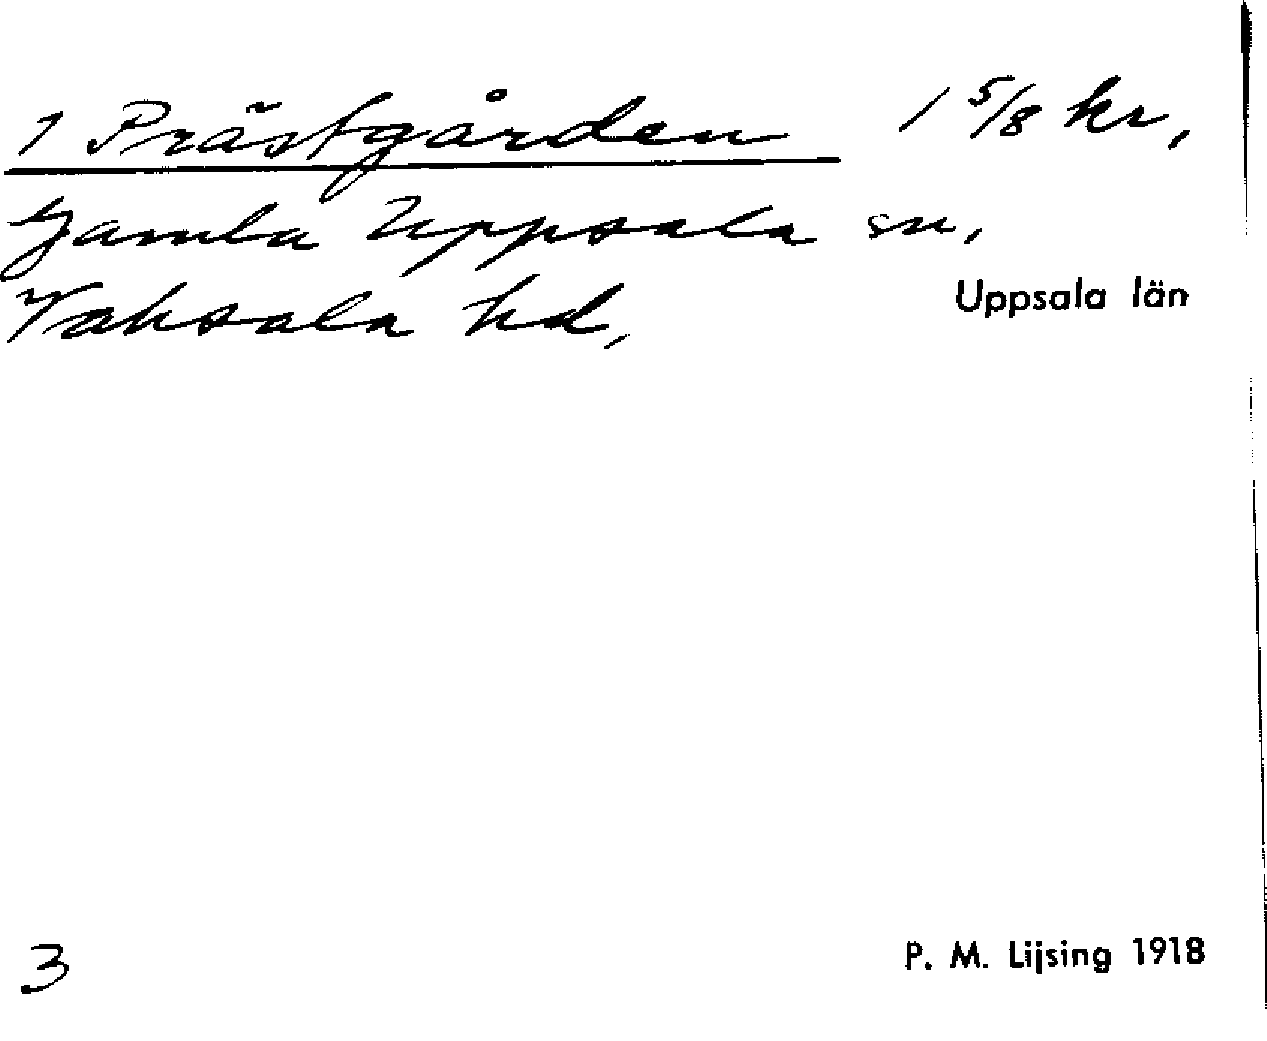 1 Prästgården 1 5/8 hr,
Gamla Uppsala sn,
Vaksala hd,
Uppsala län
3
P. M. Lijsing 1918